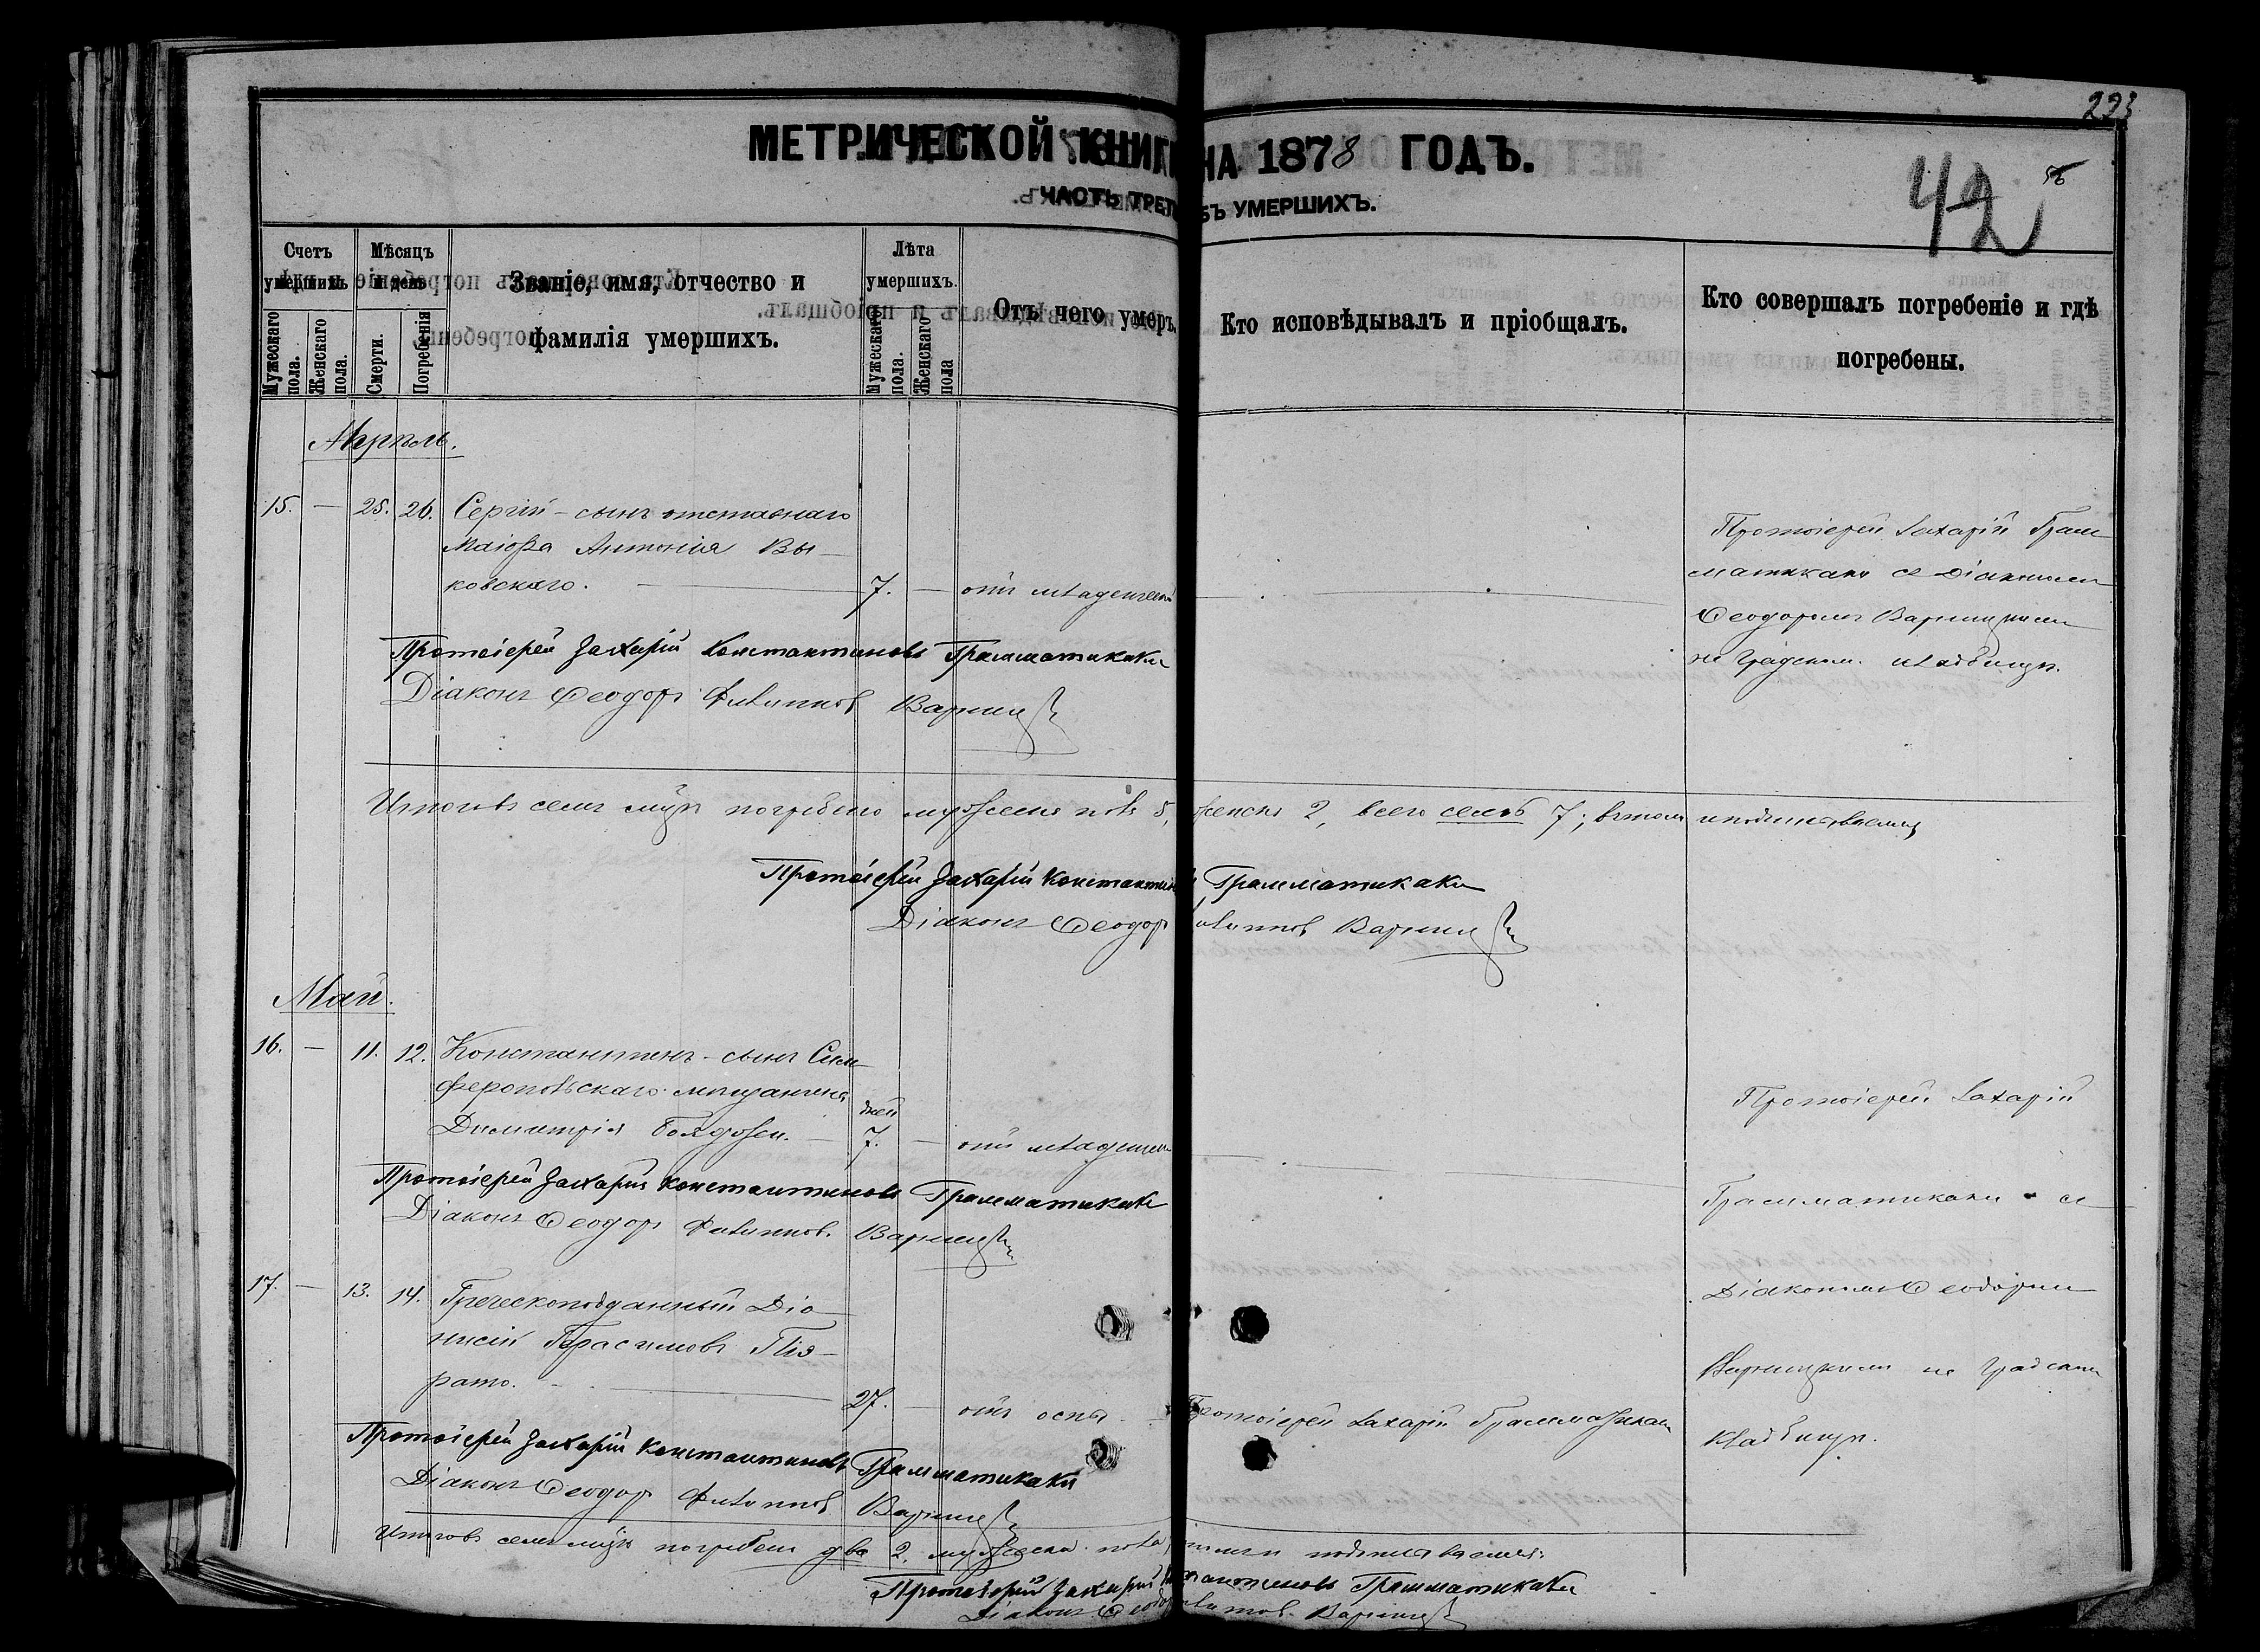 223
МЕТРИЧЕСКОЙ КНИГИ НА 1878 ГОДЪ.
42
ЧАСТЬ ТРЕТ БЪ УМЕРШИХЪ.
Счетъ умершихъ
Мужескаго пола.
Женскаго пола.
Мѣсяцъ и день
Смерти.
Погребенія
Званіе, имя, отчество и
фамилія умершихъ.
Лѣта умершихъ.
Мужескаго пола.
Женскаго пола
Отъ чего умеръ.
Кто исповѣдывалъ и пріобщалъ.
Кто совершалъ погребеніе и гдѣ
погребены.
Апрѣль.
15. — 25. 26. Сергій - сынъ отставнаго
маіора Антонія Вы-
ковскаго. — 7. — отъ младенческ
Протоіерей Захарій Грам-
матикаки съ Діакономъ
Ѳеодоромъ Варницкимъ
на градском. кладбищѣ.
Протоіерей Захарій Константиновъ Грамматикаки
Діаконъ Ѳеодоръ Филипповъ Варницкій
Итого въ семъ м-цѣ погребено мужеска пола 5, женска 2, всего семь 7; въ томъ и подписываемся
Протоіерей Захарій Константин Грамматикаки
Діаконъ Ѳеодор илипповъ Варницкій
Май.
16. — 11. 12. Константинъ - сынъ Сим-
феропольскаго мѣщанина
Димитрія — дней 7. — отъ младенчес
Протоіерей Захарій
Грамматикаки съ
Діакономъ Ѳеодоромъ
Варницкимъ на градском
кладбищѣ.
Протоіерей Захарій Константиновъ Грамматикаки
Діаконъ Ѳеодоръ Филипповъ Варницкій
17. — 13. 14. Греческоподданный Діо-
нисій Герасимовъ
27. — отъ оспы. Протоіерей Захарій Грамматикаки
Протоіерей Захарій Константиновъ Грамматикаки
Діаконъ Ѳеодоръ Филипповъ Варницкій
Итого въ семъ м-цѣ погребены два 2. мужеска пола подписываемся:
Протоіерей Захарій Константиновъ Грамматикаки
Діаконъ Ѳеодор илипповъ Варницкій